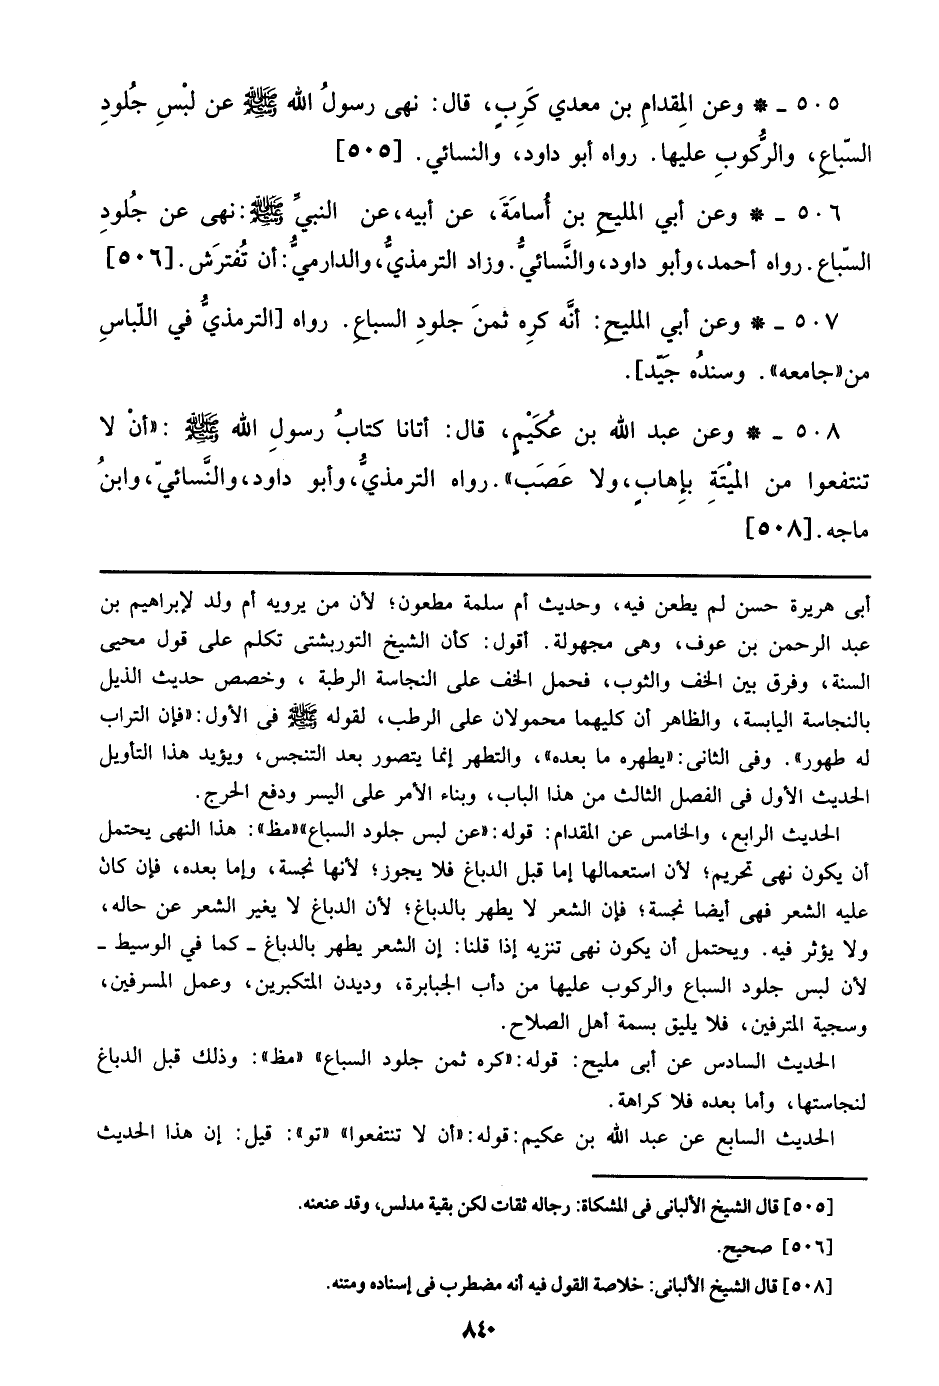 ٥٠٥ ـ * وعن المِقدامِ بن معدي كَرِبٍ، قال: نهى رسولُ الله ﷺ عن لبْسِ جُلودِ
السّباعِ، والرُّكوبِ عليها. رواه أبو داود، والنسائي. [٥٠٥]
٥٠٦ ـ * وعن أبي المليحِ بن أُسامَةَ، عن أبيه،عن النبيِّ ﷺ:نهى عن جُلودِ
السّباع.رواه أحمد،وأبو داود،والنَّسائيُّ.وزاد الترمذيُّ،والدارميُّ:أن تُفترَش.[٥٠٦]
٥٠٧ ـ * وعن أبي المليحِ: أنَّه كرِه ثمنَ جلودِ السباعِ. رواه [الترمذيُّ في اللّباسِ
من«جامعه». وسندُه جَيّد].
٥٠٨ ـ * وعن عبد الله بن عُكَيْمٍ، قال: أتانا كتابُ رسولِ الله ﷺ :«أنْ لا
تنتفعوا من المَيْتَةِ بِإهابٍ،ولا عَصَب».رواه الترمذيُّ،وأبو داود،والنَّسائيّ،وابنُ
ماجه.[٥٠٨]
أبى هريرة حسن لم يطعن فيه، وحديث أم سلمة مطعون؛ لأن من يرويه أم ولد لإبراهيم بن
عبد الرحمن بن عوف، وهى مجهولة. أقول: كأن الشيخ التوربشتى تكلم على قول محيى
السنة، وفرق بين الخف والثوب، فحمل الخف على النجاسة الرطبة ، وخصص حديث الذيل
بالنجاسة اليابسة، والظاهر أن كليهما محمولان على الرطب، لقوله ﷺ فى الأول:«فإن التراب
له طهور». وفى الثانى:«يطهره ما بعده»، والتطهر إنما يتصور بعد التنجس، ويؤيد هذا التأويل
الحديث الأول فى الفصل الثالث من هذا الباب، وبناء الأمر على اليسر ودفع الحرج.
الحديث الرابع، والخامس عن المقدام: قوله:«عن لبس جلود السباع»«مظ»: هذا النهى يحتمل
أن يكون نهى تحريم؛ لأن استعمالها إما قبل الدباغ فلا يجوز؛ لأنها نجسة، وإما بعده، فإن كان
عليه الشعر فهى أيضا نجسة؛ فإن الشعر لا يطهر بالدباغ؛ لأن الدباغ لا يغير الشعر عن حاله،
ولا يؤثر فيه. ويحتمل أن يكون نهى تنزيه إذا قلنا: إن الشعر يطهر بالدباغ ـ كما في الوسيط ـ
لأن لبس جلود السباع والركوب عليها من دأب الجبابرة، وديدن المتكبرين، وعمل المسرفين،
وسجية المترفين، فلا يليق بسمة أهل الصلاح.
الحديث السادس عن أبى مليح: قوله:«كره ثمن جلود السباع» «مظ»: وذلك قبل الدباغ
لنجاستها، وأما بعده فلا كراهة.
الحديث السابع عن عبد الله بن عكيم:قوله:«أن لا تنتفعوا» «تو»: قيل: إن هذا الحديث
[٥٠٥] قال الشيخ الألبانى فى المشكاة: رجاله ثقات لكن بقية مدلس، وقد عنعنه.
[٥٠٦] صحيح.
[٥٠٨] قال الشيخ الألبانى: خلاصة القول فيه أنه مضطرب فى إسناده ومتنه.
٨٤٠